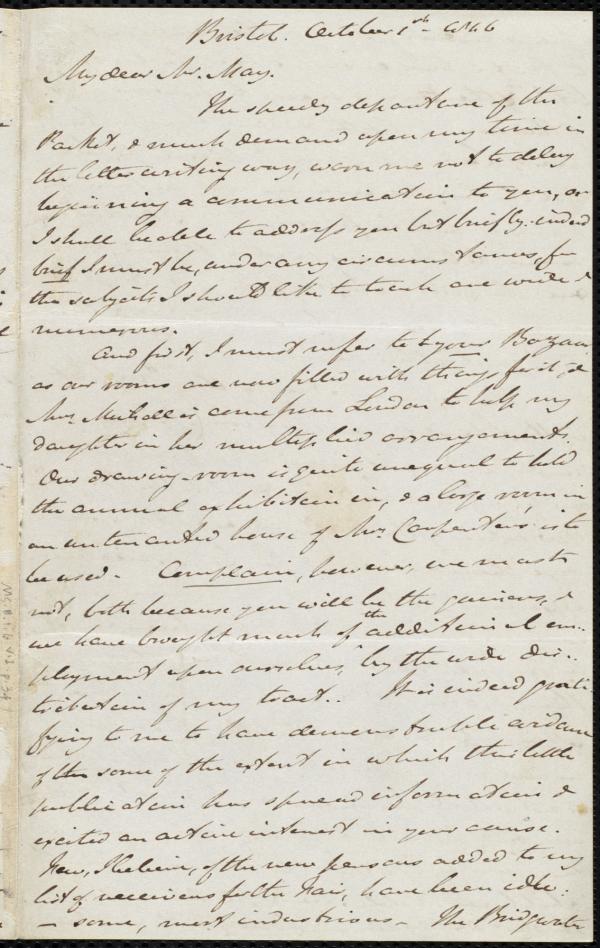 Bristol. October 1st - 1846
My dear Mr. May.
The speedy departure of the
Packet, & much demand upon my time in
the letter writing way, warn me not to delay
beginning a communication to you, or
I shall be able to address you but briefly. indeed
brief I must be, under any circumstances, for
the subjects I should like to touch are wide &
numerous.
And first, I must refer to your Bazaar
as our rooms are now filled with things for it, &
Mrs. Michell is come from London to help my
daughter in her multiplied arrangements.
Our drawing-room is quite unequal to hold
the annual exhibition in, & a large room in
an untenanted house of Mrs. Carpenter's is to
be used. Complain, however, we must
not, both because you will be the gainers, &
we have brought much of the additional em-
ployment upon ourselves, by the wide dis-
tribution of my tract.. It is indeed grati-
fying to me to have demonstrable evidence
of the some of the extent in which this little
publication has spread information &
excited an active interest in your cause.
Few, I believe, of the new persons added to my
list of receivers for the Fair, have been idle:
- some, most industrious - The Bridgwater